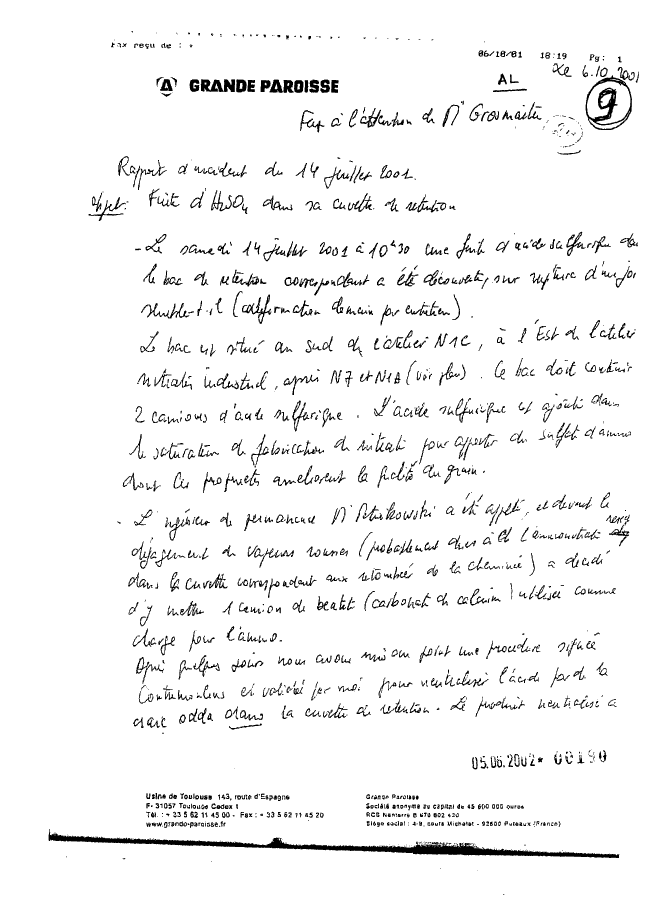 Fax reçu de :
06/10/01 18:19 Pg: 1
Le 6.10.2001
AL
9
GRANDE PAROISSE
Fax à l'attention de Mr Grosmaitre
Rapport d'incident du 14 juillet 2001.
objet: Fuite d'H2SO4 dans sa cuvette de retention
- Le samedi 14 juillet 2001 à 10h30 une fuite d'acide sulfurique dans
le bac de retention correspondant a été découverte, sur rupture d'un joint
semble-t-il (
Le bac est situé au sud de l'atelier N1C, à l'Est de l'atelier
nitrates industriel, après N7 et N1A (voir plan). Ce bac doit contenir
2 camions d'acide sulfurique. L'acide sulfurique est ajouté dans
la saturation de fabrication du nitrate pour apporter du sulfate d'ammo
dont les propriétés améliorent la qualité du grain.
- L'ingénieur de permanence Mr a été appelé, et devant le
dégagement de vapeurs rousses (probablement dues à l'ammonitrate
dans la cuvette correspondant aux retombées de la cheminée) a décidé
d'y mettre 1 camion de (carbonate de calcium) utilisée comme
charge pour l'ammo.
Après quelques jours nous avons mis au point une procédure signée
et validée par moi pour neutraliser l'acide par de la
odda dans la cuvette de retention. Le produit neutralisé a
05.06.2002* 00190
Usine de Toulouse 143, route d'Espagne
F- 31057 Toulouse Cedex 1
Tél. : + 33 5 62 11 45 00 - Fax : + 33 5 62 11 45 20
www.grande-paroisse.fr
Grande Paroisse
Société anonyme au capital de 45 600 000 euros
RCS Nanterre B 670 802 430
Siège social : 4-8, cours Michelet - 92800 Puteaux (France)